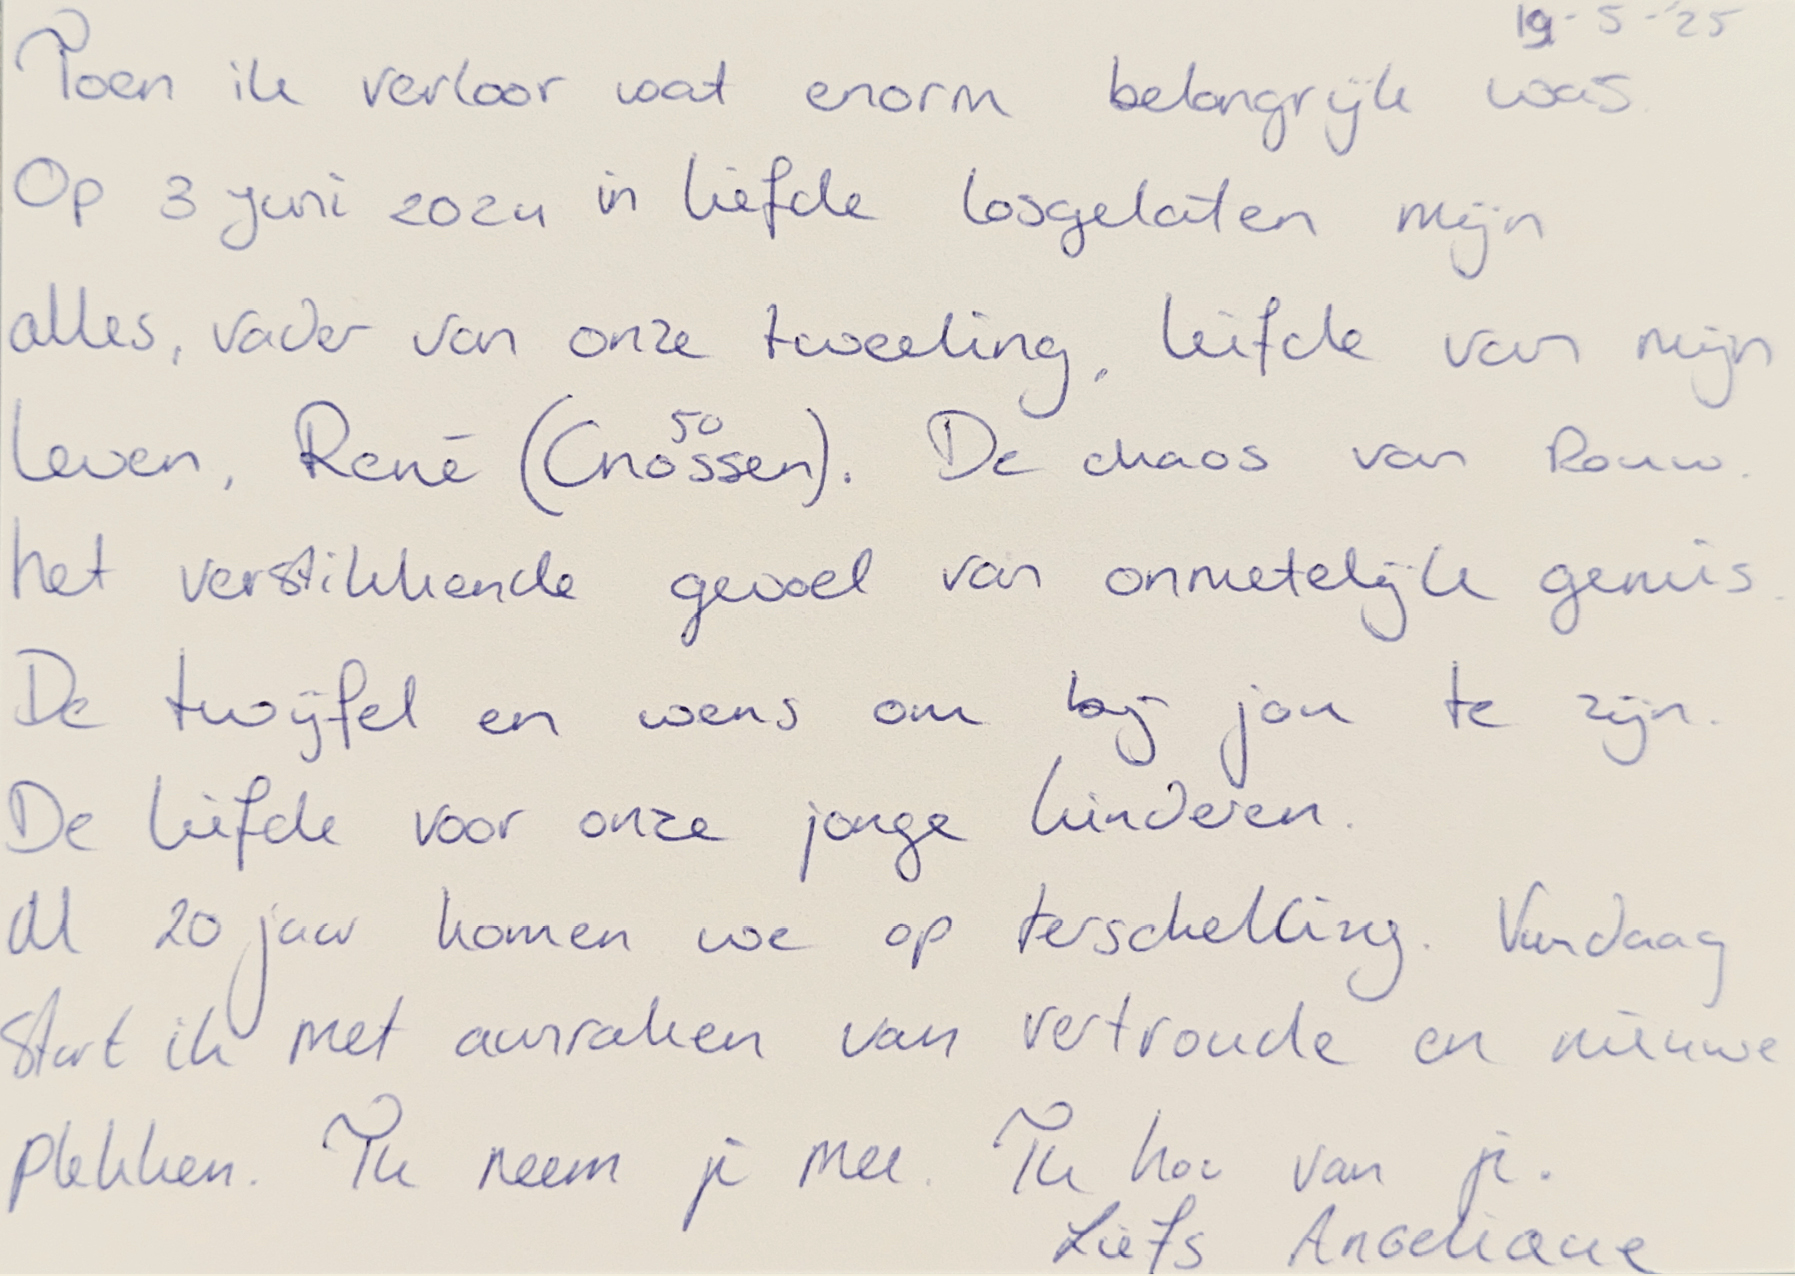 19-5-'25
Toen ik verloor wat enorm belangrijk was.
Op 3 juni 2024 in liefde losgelaten mijn
alles, vader van onze tweeling, liefde van mijn
leven, René (Cnossen). De chaos van Rouw.
50
het verstikkende gevoel van onmetelijk gemis.
De twijfel en wens om bij jou te zijn.
De liefde voor onze jonge kinderen.
Al 20 jaar komen we op terschelling. Vandaag
start ik met aanraken van vertroude en nieuwe
plekken. Ik neem je mee. Ik hou van je.
Liefs Angelique